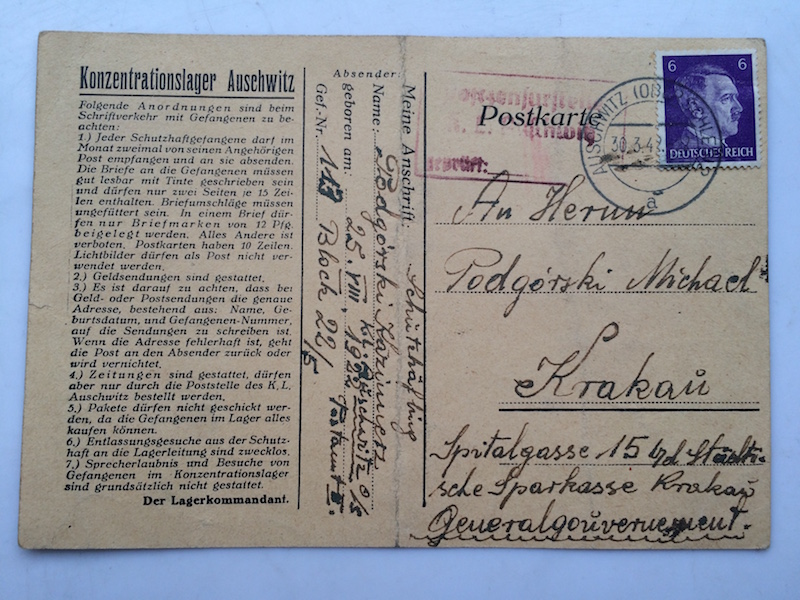 Konzentrationslager Auschwitz
Folgende Anordnungen sind beim
Schriftverkehr mit Gefangenen zu be-
achten:
1.) Jeder Schutzhaftgefangene darf im
Monat zweimal von seinen Angehörigen
Post empfangen und an sie absenden.
Die Briefe an die Gefangenen müssen
gut lesbar mit Tinte geschrieben sein
und dürfen nur zwei Seiten je 15 Zei-
len enthalten. Briefumschläge müssen
ungefüttert sein. In einem Brief dür-
fen nur Briefmarken von 12 Pfg.
beigelegt werden. Alles Andere ist
verboten. Postkarten haben 10 Zeilen.
Lichtbilder dürfen als Post nicht ver-
wendet werden.
2.) Geldsendungen sind gestattet.
3.) Es ist darauf zu achten, dass bei
Geld- oder Postsendungen die genaue
Adresse, bestehend aus: Name, Ge-
burtsdatum, und Gefangenen-Nummer,
auf die Sendungen zu schreiben ist.
Wenn die Adresse fehlerhaft ist, geht
die Post an den Absender zurück oder
wird vernichtet.
4.) Zeitungen sind gestattet, dürfen
aber nur durch die Poststelle des K.L.
Auschwitz bestellt werden.
5.) Pakete dürfen nicht geschickt wer-
den, da die Gefangenen im Lager alles
kaufen können.
6.) Entlassungsgesuche aus der Schutz-
haft an die Lagerleitung sind zwecklos.
7.) Sprecherlaubnis und Besuche von
Gefangenen im Konzentrationslager
sind grundsätzlich nicht gestattet.
Der Lagerkommandant.
Absender:
Meine Anschrift: Schutzhäftling
Name: Podgórski
geboren am: 25. VIII.
Gef.-Nr. Block 22/5
Auschwitz o/s
Postamt 2.
Postkarte
6 6
DEUTSCHES REICH
AUSCHWITZ (OBERSCHLES)
30.3.4
a
geprüft:
An Herrn
Podgórski Michael
Krakau
Spitalgasse 15 b/d Städti-
sche Sparkasse Krakau
Generalgouvernement.